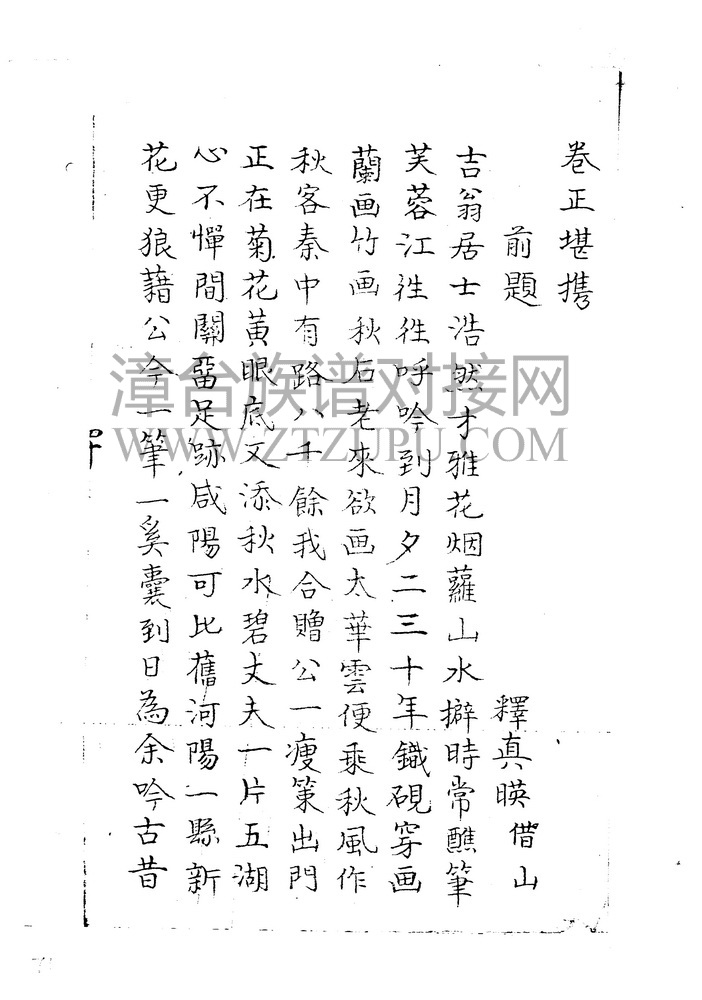 卷正堪攜
前題　釋真暎借山
吉翁居士浩然才雅花烟蘿山水擗時常醮筆
芙蓉江徃徃呼吟到月夕二三十年鐡硯穿画
蘭画竹画秋石老來欲画太華雲便乘秋風作
秋客秦中有路八千餘我合贈公一瘦策出門
正在菊花黃眼底文添秋水碧丈夫一片五湖
心不憚間關畱足跡咸陽可比舊河陽一縣新
花更狼藉公今一筆一奚囊到日為余吟古昔
四十
漳台族谱对接网
WWW.ZTZUPU.COM